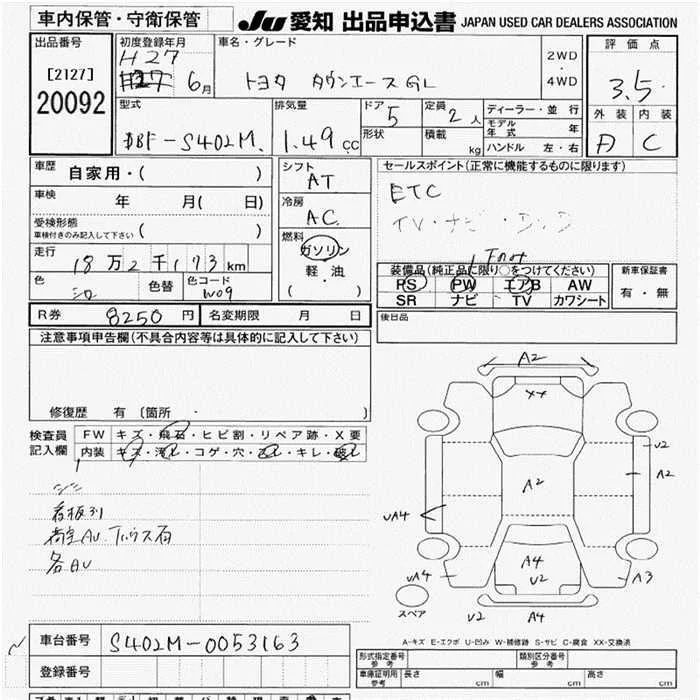 車内保管・守衛保管
JU 愛知 出品申込書 JAPAN USED CAR DEALERS ASSOCIATION
出品番号
[2127]
20092
初度登録年月
H27
6月
車名・グレード
トヨタ タウンエース GL
2WD
・
4WD
評価点
3.5
外装 内装
A C
型式
DBF-S402M
排気量
1.49 cc
ドア 5
形状
定員 2 人
積載 kg
ディーラー・並行
モデル年式 年
ハンドル 左・右
車歴 自家用・( )
車検 年 月( 日)
受検形態
車検付きのみ記入して下さい ( )
走行 18万2千173km
色 シロ 色替 色コード W09
シフト
AT
冷房
AC
燃料
ガソリン
軽・油
( ・ )
セールスポイント(正常に機能するものに限ります)
ETC
TV・ナビ・
装備品(純正品に限り○をつけてください)
PS PW エアB AW
SR ナビ TV カワシート
新車保証書
有・無
R券 8250 円 名変期限 月 日
後日品
注意事項申告欄(不具合内容等は具体的に記入して下さい)
修復歴 有 〔箇所 ・ 〕
検査員
記入欄
FW キズ・飛石・ヒビ割・リペア跡・X要
内装 キズ・汚レ・コゲ・穴・スレ・キレ・破レ
看板跡
各AU
A2
XX
U2
A2
A2
UA4
A4
U2
UA4
A3
スペア
U2
A4
A-キズ E-エクボ U-凹み W-補修跡 S-サビ C-腐食 XX-交換済
車台番号 S402M-0053163
登録番号
形式指定番号
参考
類別区分番号
参考
車庫証明用
参考
長さ cm 幅 cm 高さ cm